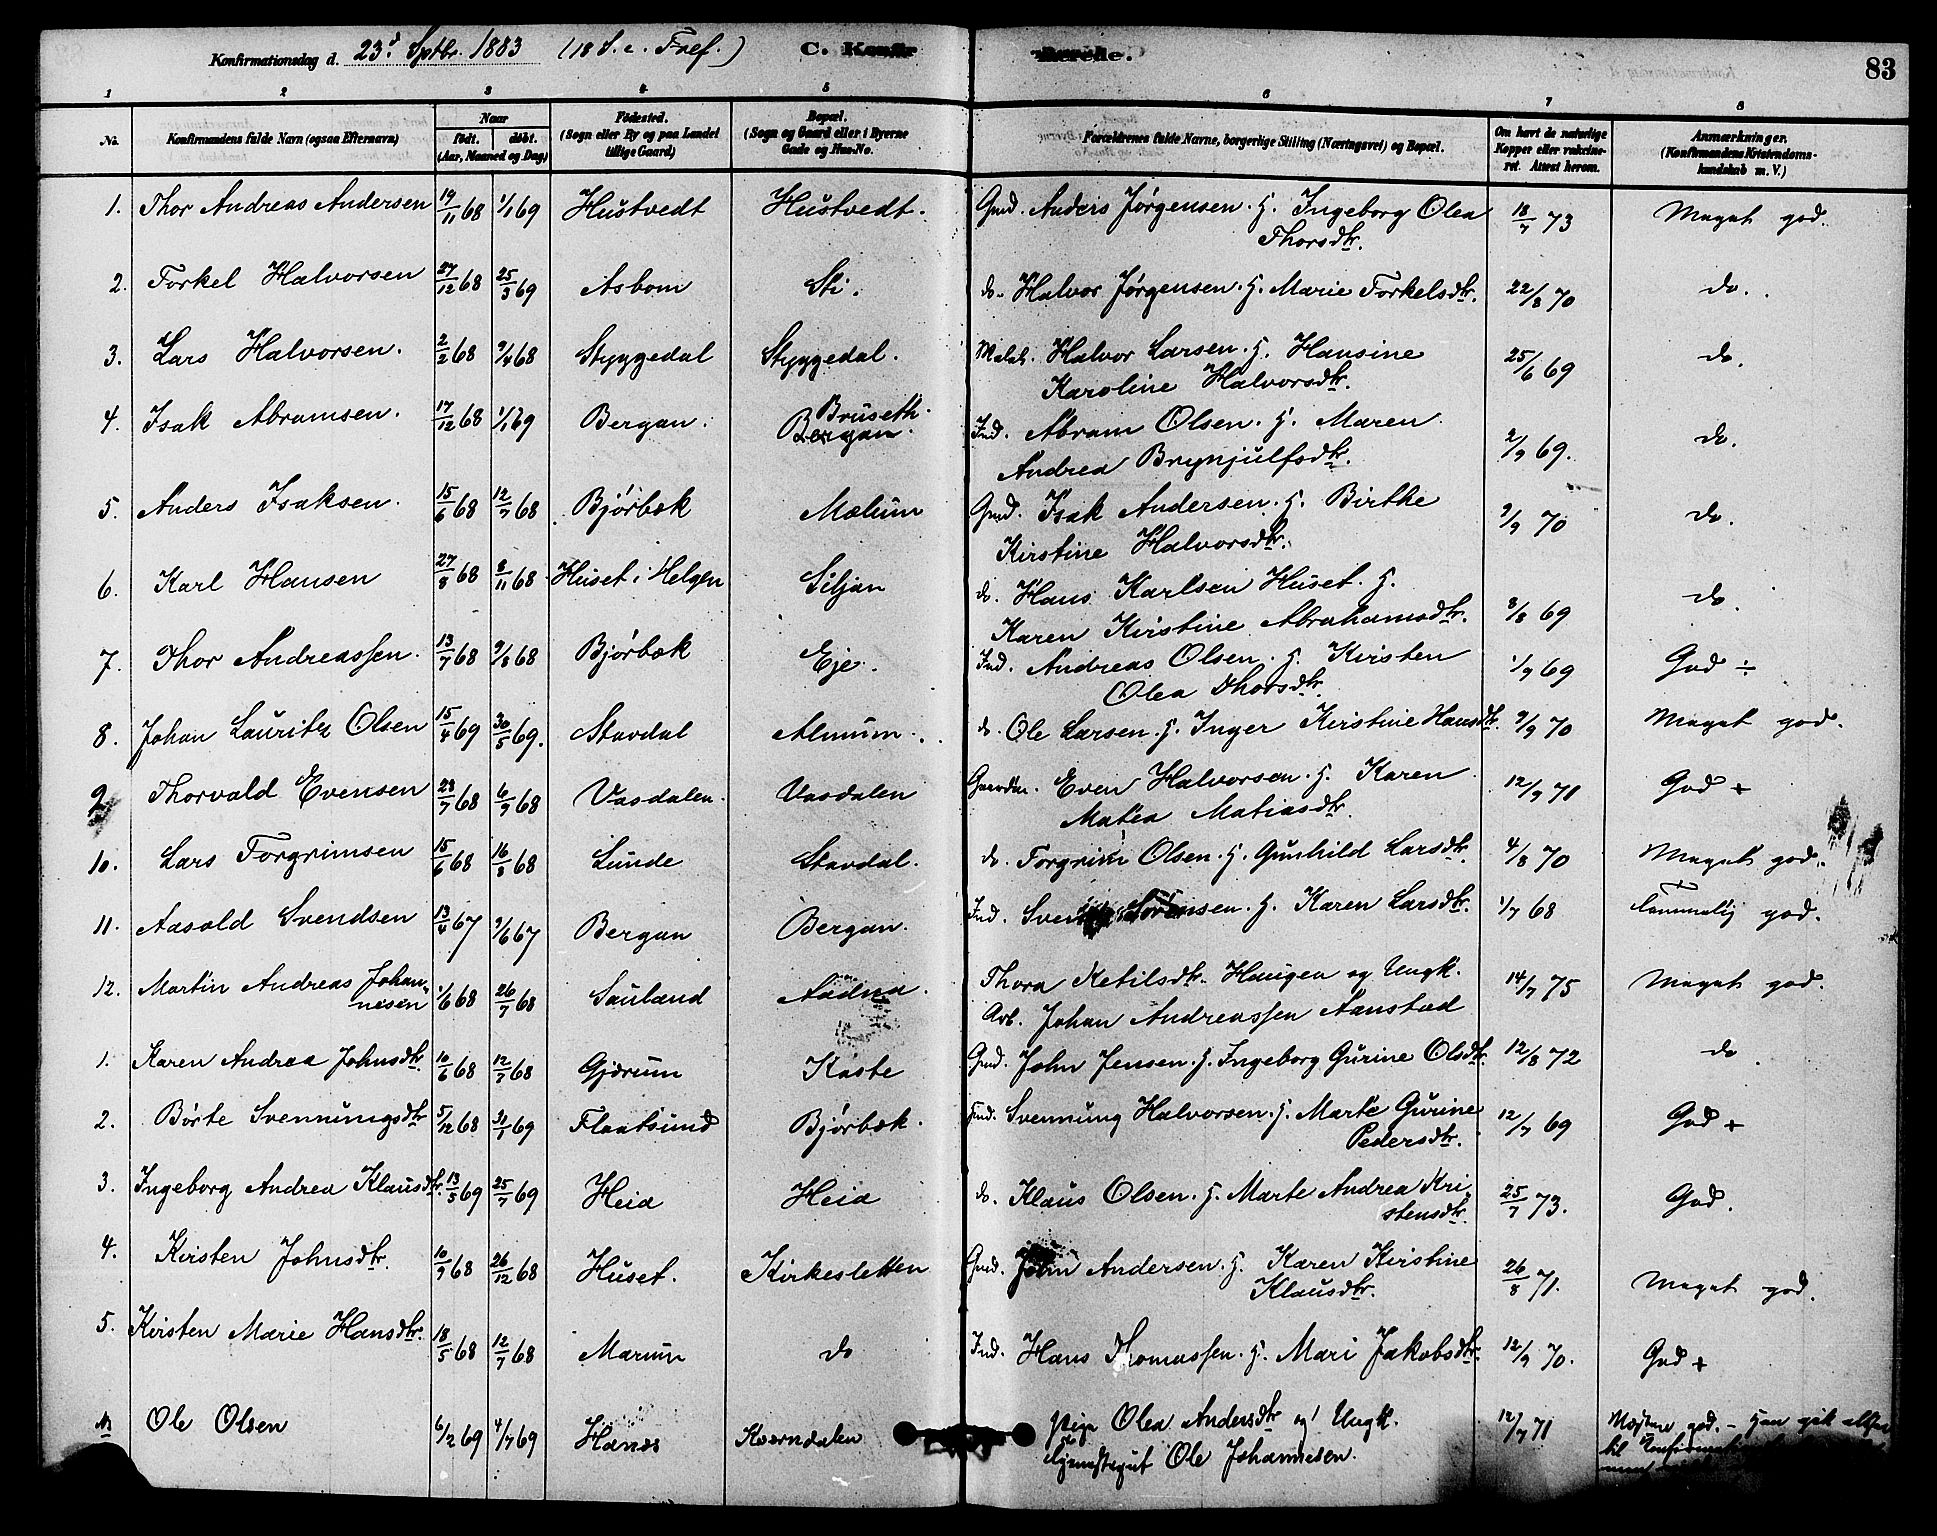 Konfirmationsdag d. 23d Sptbr. 1883 (18 S. e. Tref.) C. Konfir
merede. 83
1 2 3 4 5 6 7 8
No. Konfirmandens fulde Navn (ogsaa Efternavn) Naar født. døbt. (Aar, Maaned og Dag) Fødested. (Sogn eller By og paa Landet tillige Gaard) Bopæl. (Sogn og Gaard eller i Byerne Gade og Hus-No. Forældrenes fulde Navne, borgerlige Stilling (Næringsvei) og Bopæl. Om havt de naturlige Kopper eller vakcineret. Attest herom. Anmærkninger. (Konfirmandens Kristendomskundskab m. V.)
1. Thor Andreas Andersen 19/11 68 1/1 69 Hustvedt Hustvedt. Gmd. Anders Jørgensen. H. Ingeborg Olea 18/7 73 Meget god.
Thorsdtr.
2. Torkel Halvorsen 27/12 68 25/3 69 Asbom Sti. do. Halvor Jørgensen. H. Marie Torkelsdtr. 22/8 70 do.
3. Lars Halvorsen. 2/2 68 9/4 68 Styggedal Styggedal. Halvor Larsen. H. Hansine 25/6 69 do.
Karoline Halvorsdtr.
4. Isak Abramsen. 17/12 68 1/1 69 Bergan. Bruseth. Bergan. Ind. Abram Olsen. H. Maren 2/9 69. do.
Andrea Brynjulfsdtr.
5. Anders Isaksen. 15/6 68 12/7 68 Bjørbæk Mælum Gmd. Isak Andersen. H. Birthe 9/9 70 do.
Kirstine Halvorsdtr.
6. Karl Hansen 27/8 68 8/11 68 Huset i Helgen Siljan do. Hans Karlsen Huset. H. 8/8 69 do.
Karen Kirstine Abrahamsdtr.
7. Thor Andreassen. 13/7 68 9/8 68 Bjørbæk Eje. Ind. Andreas Olsen. H. Kirsten 1/9 69 God ÷
Olea Thorsdtr.
8. Johan Lauritz Olsen 15/4 69 30/5 69. Stavdal Almum. do. Ole Larsen. H. Inger Kirstine Hansdtr. 9/9 70 Meget god.
9. Thorvald Evensen 28/7 68 6/9 68 Vasdalen. Vasdalen Gaardm. Even Halvorsen. H. Karen 12/9 71 God +
Matea Matiasdtr.
10. Lars Torgrimsen 15/6 68 16/8 68 Lunde Stavdal. do. Torgrim Olsen. H. Gunhild Larsdtr. 4/8 70 Meget god.
11. Aasold Svendsen 13/4 67 9/6 67 Bergan Bergan. Ind. Svend Sørensen. H. Karen Larsdtr. 1/7 68 Temmelig god.
12. Martin Andreas Johannesen 1/6 68 26/7 68 Sauland Aadna. Thora Ketilsdtr. Haugen og Ungk. 14/7 75 Meget god.
Arb. Johan Andreassen Aanstad
1. Karen Andrea Johnsdtr. 10/6 68 12/7 68 Gjærum Kaste Gmd. John Jensen. H. Ingeborg Gurine Olsdtr. 12/8 72 do
2. Børte Svenningsdtr 5/12 68 31/1 69 Flaatsund Bjørbæk. Ind. Svennung Halvorsen. H. Marte Gurine 12/7 69 God +
Pedersdtr.
3. Ingeborg Andrea Klausdtr. 13/5 69 25/7 69 Heia Heia do. Klaus Olsen. H. Marte Andrea Kri- 25/7 73. God.
stensdtr.
4. Kirsten Johnsdtr. 10/9 68 26/12 68 Huset. Kirkesletten Gmd. John Andersen. H. Karen Kirstine 26/8 71. Meget god.
Klausdtr.
5. Kirsten Marie Hansdtr. 18/5 68 12/7 68 Marum do Ind. Hans Thomassen. H. Mari Jakobsdtr. 12/9 70. God +
Ole Olsen 6/2 69 4/7 69 Hanes Kværndalen Pige Olea Andersdtr og Ungk. 12/7 71 god. – Han gik
Ole Johannesen. til